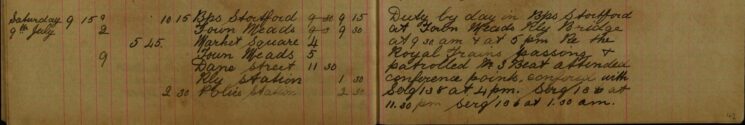 Saturday 9 15 9 10 15 Bps Stortford 9 30 9 15
9th July 2 Town Meads 9 9 30
5 45 Market Square 4
9 Town Meads 5
Dane Street 11 30
Rly Station 1 30
2 30 Police Station 2 30
Duty by day in Bps Stortford
at Town Meads Rly Bridge
at 9.30 am & at 5 pm Re the
Royal Trains passing &
patrolled No 3 Beat attended
conference points, confered with
Serg 138 at 4 pm. Serg 106 at
11.30 pm Serg 106 at 1.30 am.